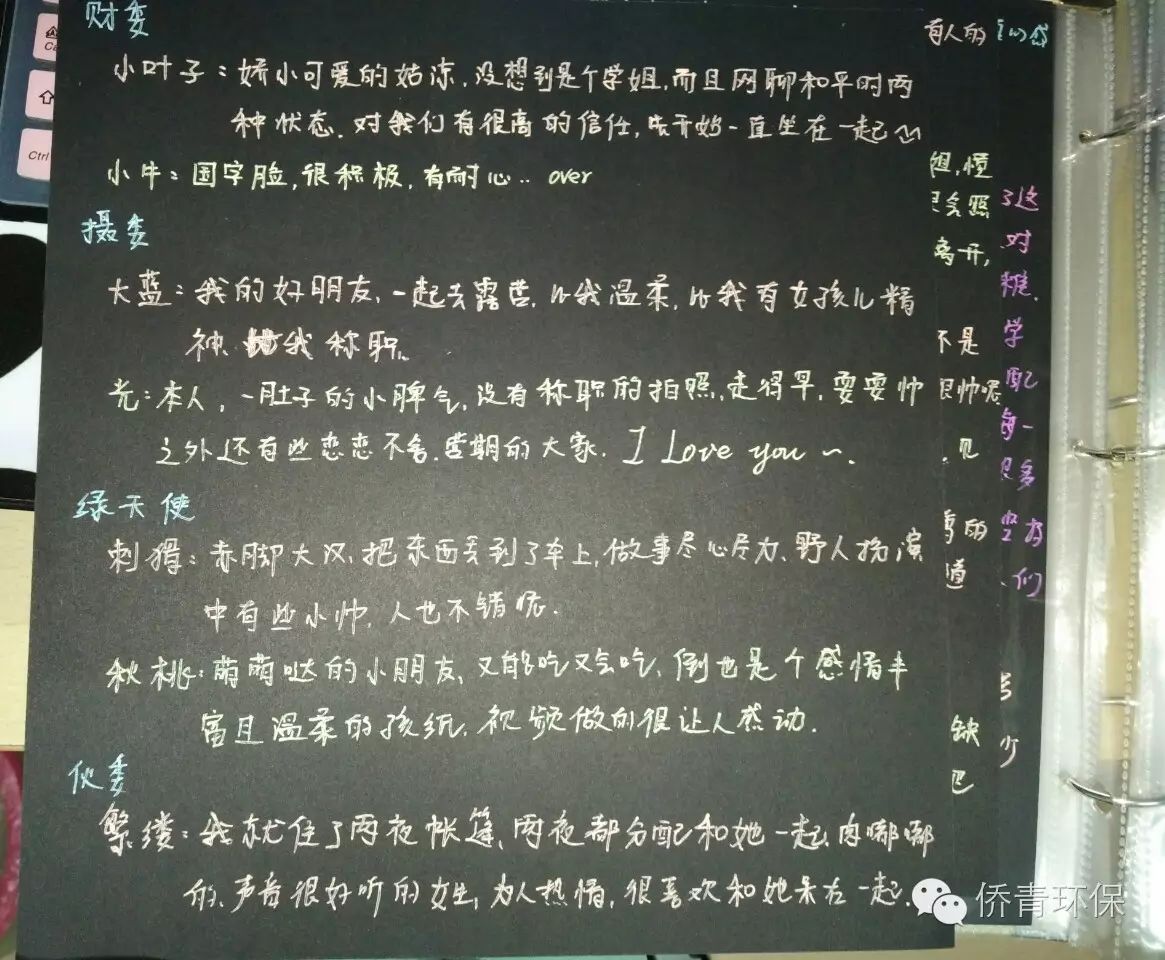 财委
小叶子：娇小可爱的姑凉，没想到是个学姐，而且网聊和平时两
种状态．对我们有很高的信任，从开始一直坐在一起～
小牛：国字脸，很积极，有耐心．． over
摄委
大蓝：我的好朋友，一起去露营，比我温柔，比我有女孩儿精
神、比我称职。
光：本人，一肚子的小脾气，没有称职的拍照，走得早，耍耍帅
之外还有些恋恋不舍．营期的大家． I Love you ～．
绿天使
刺猬：赤脚大汉，把东西丢到了车上，做事尽心尽力、野人扮演
中有些小帅，人也不错依．
秋桃：萌萌哒的小朋友，又能吃又会吃，倒也是个感情丰
富且温柔的孩纸．视频做的很让人感动．
伙委
繁缕：我就住了两夜帐篷，两夜都分配和她一起，肉嘟嘟
的，声音很好听的女生，为人热情，很喜欢和她呆在一起．
有人的
感
组，懂
照
离开，
不是
很帅呢
见
的
道
缺
巴
了这
对
学
配
每一
多
为
们
少
侨青环保
Ctrl